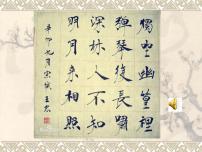 獨坐幽篁裡
彈琴復長嘯
深林人不知
明月來相照
辛卯九月